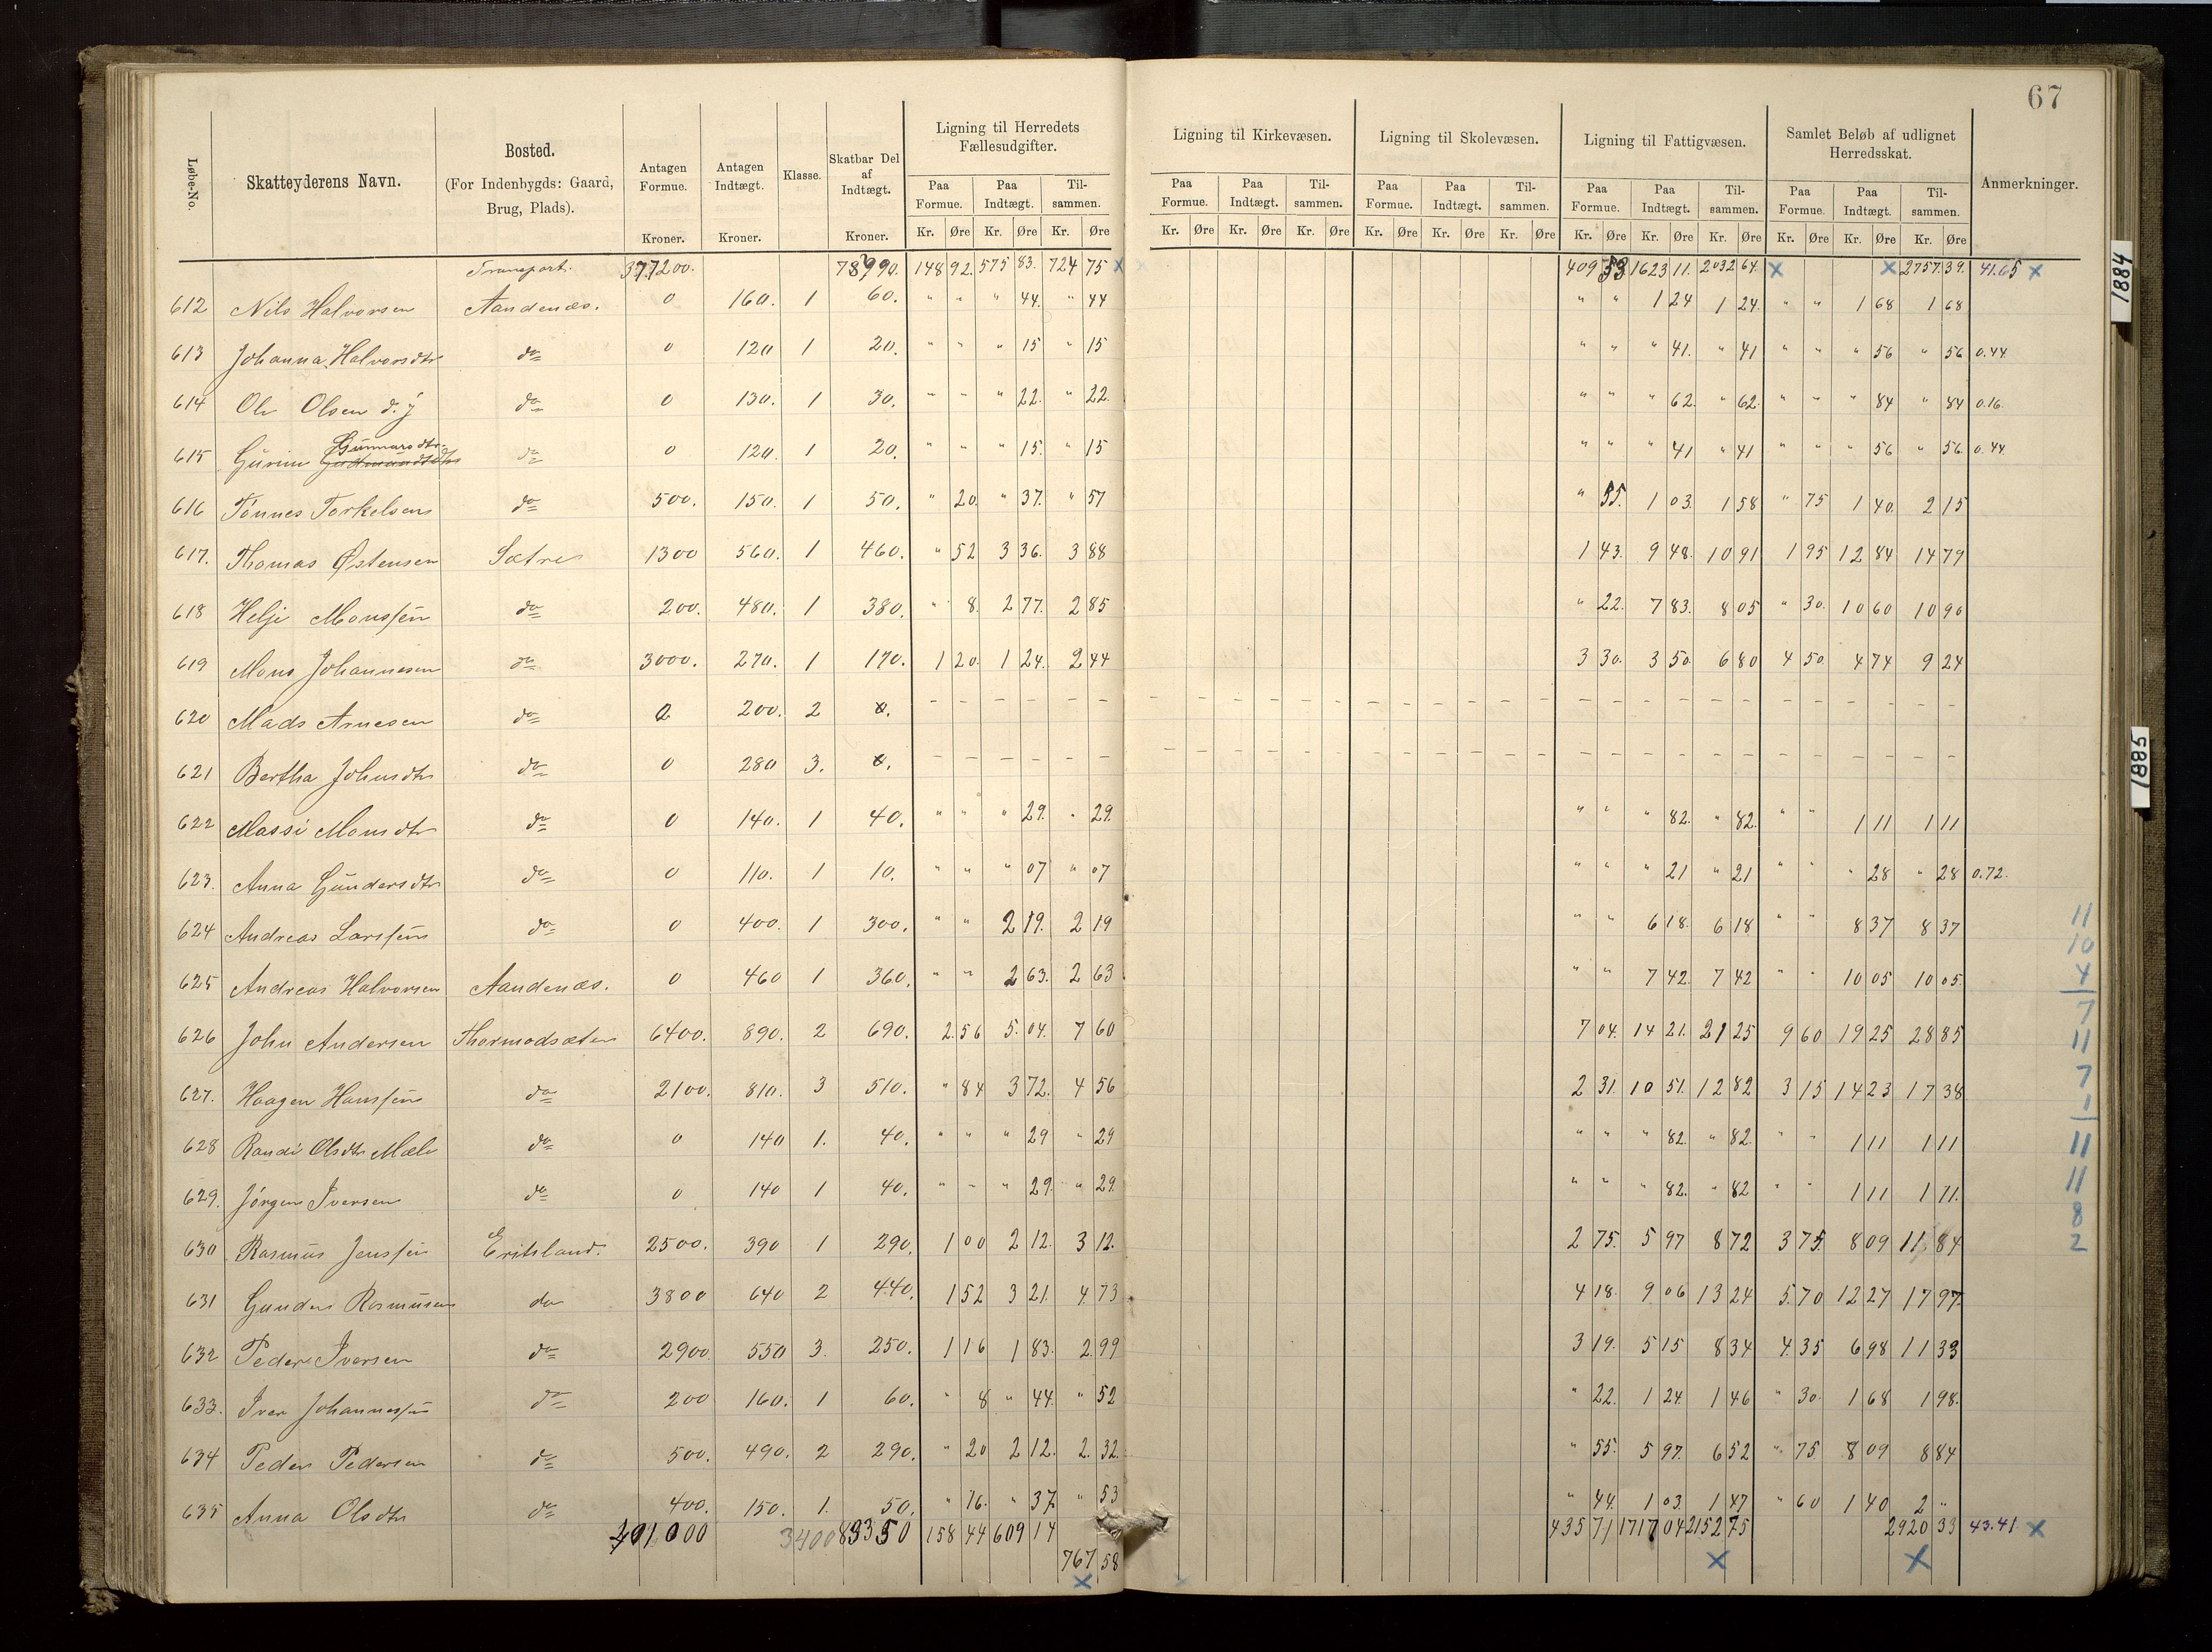 67
Løbe-No. Skatteyderens Navn. Bosted. (For Indenbygds: Gaard, Brug, Plads). Antagen Formue. Kroner. Antagen Indtægt. Kroner. Klasse. Skatbar Del af Indtægt. Kroner. Ligning til Herredets Fællesudgifter. Ligning til Kirkevæsen. Ligning til Skolevæsen. Ligning til Fattigvæsen. Samlet Beløb af udlignet Herredsskat. Anmerkninger.
Paa Formue. Paa Indtægt. Til- sammen. Paa Formue. Paa Indtægt. Til- sammen. Paa Formue. Paa Indtægt. Til- sammen. Paa Formue. Paa Indtægt. Til- sammen. Paa Formue. Paa Indtægt. Til- sammen.
Kr. Øre Kr. Øre Kr. Øre Kr. Øre Kr. Øre Kr. Øre Kr. Øre Kr. Øre Kr. Øre Kr. Øre Kr. Øre Kr. Øre Kr. Øre Kr. Øre Kr. Øre
Transport. 377200. 148 92. 575 83. 724 75 x 409 53 1623 11. 2032 64. x x 2757 39. 41.65 x
612 Nils Halvorsen Aandenæs. 0 160. 1 60. " " " 44. " 44 " " 1 24 1 24. " " 1 68 1 68
613 Johanna Halvorsdtr do 0 120 1 20. " " " 15 " 15 " " " 41. " 41 " " " 56 " 56 0.44.
614 Ole Olsen d. y do 0 130. 1 30. " " " 22. " 22. " " " 62. " 62. " " " 84 " 84 0.16.
615 Gurine Gunnarsdtr. do 0 120. 1 20. " " " 15. " 15 " " " 41 " 41 " " " 56 " 56. 0.44.
616 Tønnes Torkelsen do 500. 150. 1 50. " 20. " 37. " 57 " 55. 1 03. 1 58 " 75 1 40. 2 15
617. Thomas Østensen Sætre 1300 560. 1 460. " 52 3 36. 3 88 1 43. 9 48. 10 91 1 95 12 84 14 79
618 Helje Monssen do 200. 480. 1 380. " 8. 2 77. 2 85 " 22. 7 83. 8 05 " 30. 10 60 10 90
619 Mons Johannesen do 3000. 270. 1 170. 1 20. 1 24. 2 44 3 30. 3 50. 6 80 4 50. 4 74 9 24
620 Mads Arnesen do 0 200. 2 0. – – – – – – – – – – – – – – – – – – – – – – – – – – – – – –
621 Bertha Johnsdtr do 0 280 3. 0. – – – – – – – – – – – – – – – – – – – – – – – – – – – – – –
622 Massi Monsdtr do 0 140. 1 40. " " " 29. " 29. " " " 82. " 82. " " 1 11 1 11
623. Anna Gundersdtr do 0 110. 1 10. " " " 07 " 07 " " " 21 " 21 " " " 28 " 28 0.72.
624As Larssen do 0 400. 1 300. " " 2 19. 2 19 " " 6 18. 6 18 " " 8 37 8 37
625 Andreas Halvorsen Aandenæs. 0 460 1 360. " " 2 63. 2 63 " " 7 42. 7 42 " " 10 05 10 05.
626 John Andersen Thormodsæter 6400. 890. 2 690. 2.56 5. 04. 7 60 7 04. 14 21. 21 25 9 60 19 25 28 85
627. Haagen Hanssen do 2100. 810. 3 510. " 84 3 72. 4 56 2 31. 10 51. 12 82 3 15 14 23 17 38
628 Randi Olsdtr Mæle do 0 140 1. 40. " " " 29 " 29 " " " 82. " 82. " " 1 11 1 11
629. Jørgen Iversen do 0 140 1 40. " " " 29. " 29. " " " 82. " 82 " " 1 11 1 11.
630 Rasmus Jenssen Eriksland. 2500. 390 1 290. 1 00 2 12. 3 12. 2 75. 5 97 8 72 3 75. 8 09 11 84
631 Gunder Rasmusen do 3800 640 2 440. 1 52 3 21. 4 73 4 18. 9 06 13 24 5.70 12 27 17 97.
632 Peder Iversen do 2900. 550 3. 250. 1 16 1 83. 2.99 3 19. 5 15 8 34 4.35 6 98 11 33
633. Iver Johannessen do 200 160. 1 60. " 8 " 44. " 52 " 22. 1 24. 1 46 " 30. 1 68 1 98.
634 Peder Pedersen do 500. 490. 2 290. " 20 2 12. 2. 32. " 55. 5 97. 6 52 " 75. 8 09 8 84
635 Anna Olsdtr do 400. 150. 1. 50. " 16. " 37. " 53 " 44. 1 03. 1 47 " 60 1 40 2 "
401000 3400 83350 158 44 609 14 435 71 1717 04 2152 75 2920 33 43.41. x
767 58 x x
x x
11
10
4
7
11
7
1
11
11
8
2
1884
1885